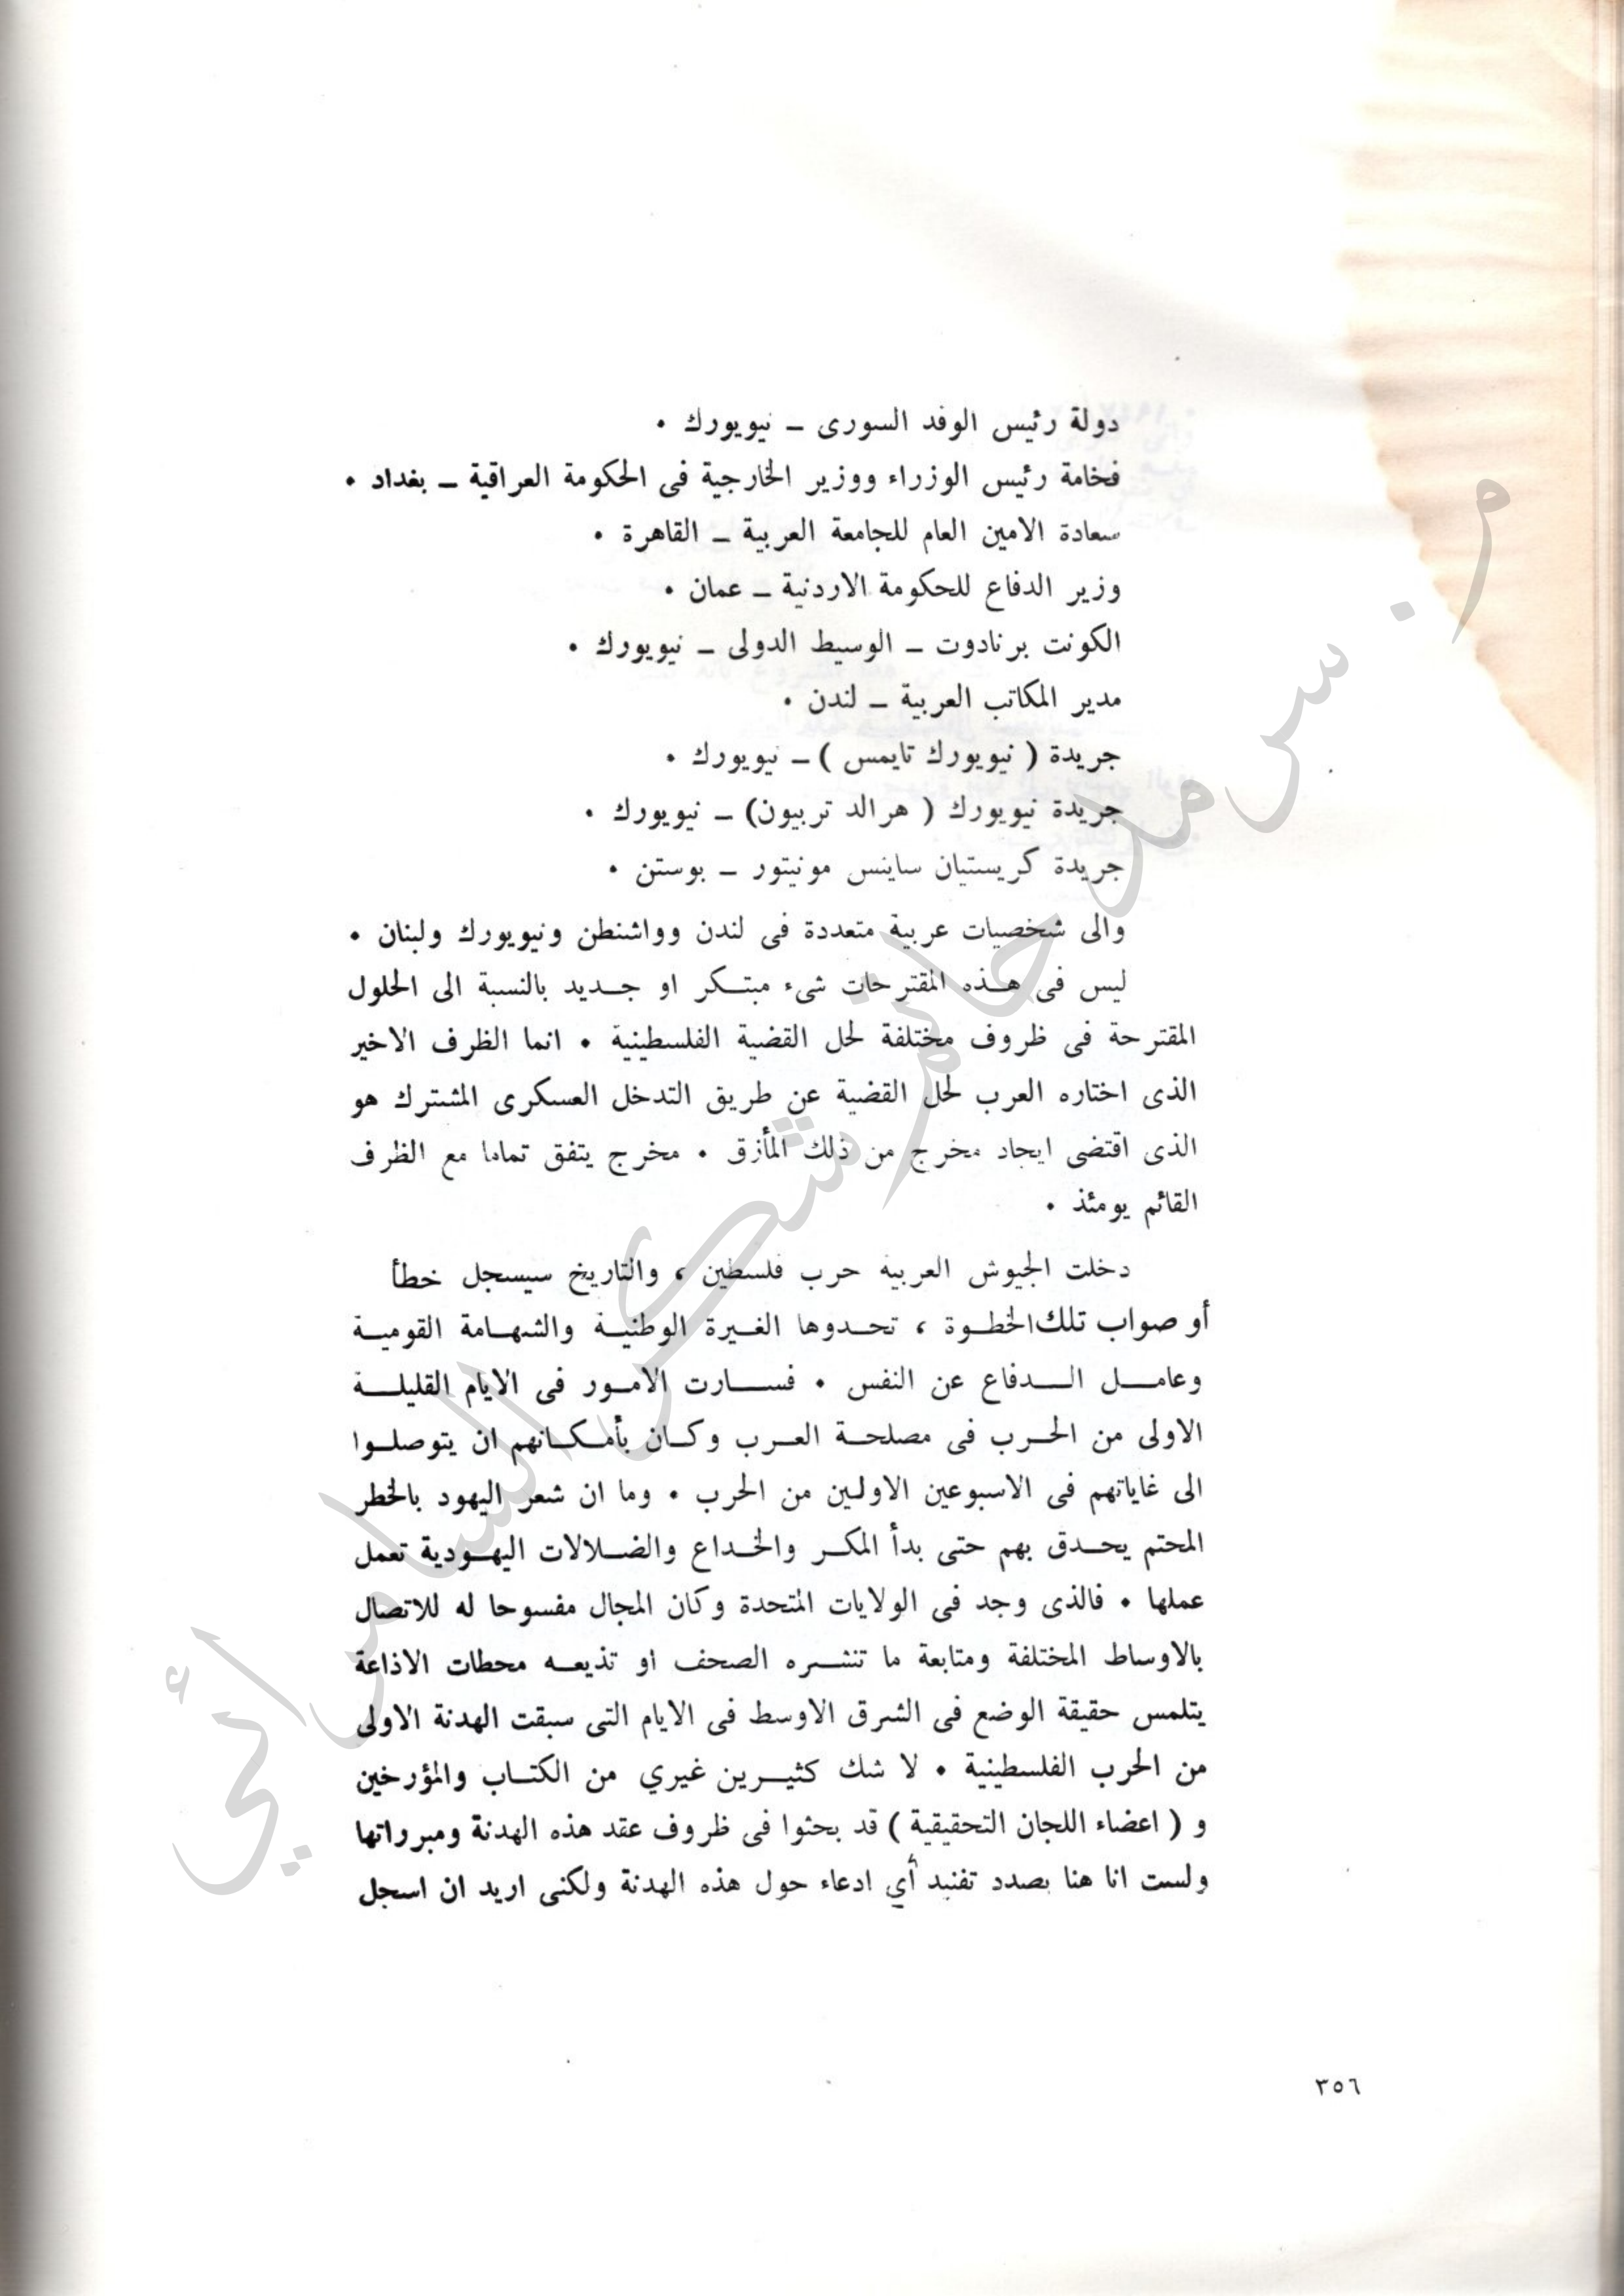 دولة رئيس الوفد السورى – نيويورك .
فخامة رئيس الوزراء ووزير الخارجية فى الحكومة العراقية – بغداد .
سعادة الامين العام للجامعة العربية – القاهرة .
وزير الدفاع للحكومة الاردنية – عمان .
الكونت برنادوت – الوسيط الدولى – نيويورك .
مدير المكاتب العربية – لندن .
جريدة ( نيويورك تايمس ) – نيويورك .
جريدة نيويورك ( هرالد تربيون) – نيويورك .
جريدة كريستيان ساينس مونيتور – بوستن .
والى شخصيات عربية متعددة فى لندن وواشنطن ونيويورك ولبنان .
ليس فى هذه المقترحات شىء مبتكر او جديد بالنسبة الى الحلول
المقترحة فى ظروف مختلفة لحل القضية الفلسطينية . انما الظرف الاخير
الذى اختاره العرب لحل القضية عن طريق التدخل العسكرى المشترك هو
الذى اقتضى ايجاد مخرج من ذلك المأزق . مخرج يتفق تماما مع الظرف
القائم يومئذ .
دخلت الجيوش العربية حرب فلسطين ، والتاريخ سيسجل خطأ
أو صواب تلك الخطوة ، تحدوها الغيرة الوطنية والشهامة القومية
وعامل الدفاع عن النفس . فسارت الامور فى الايام القليلة
الاولى من الحرب فى مصلحة العرب وكان بأمكانهم ان يتوصلوا
الى غاياتهم فى الاسبوعين الاولين من الحرب . وما ان شعر اليهود بالخطر
المحتم يحدق بهم حتى بدأ المكر والخداع والضلالات اليهودية تعمل
عملها . فالذى وجد فى الولايات المتحدة وكان المجال مفسوحا له للاتصال
بالاوساط المختلفة ومتابعة ما تنشره الصحف او تذيعه محطات الاذاعة
يتلمس حقيقة الوضع فى الشرق الاوسط فى الايام التى سبقت الهدنة الاولى
من الحرب الفلسطينية . لا شك كثيرين غيري من الكتاب والمؤرخين
و ( اعضاء اللجان التحقيقية ) قد بحثوا فى ظروف عقد هذه الهدنة ومبرراتها
ولست انا هنا بصدد تفنيد أي ادعاء حول هذه الهدنة ولكنى اريد ان اسجل
٣٥٦
م. سرمد حاتم شكر السامرائي